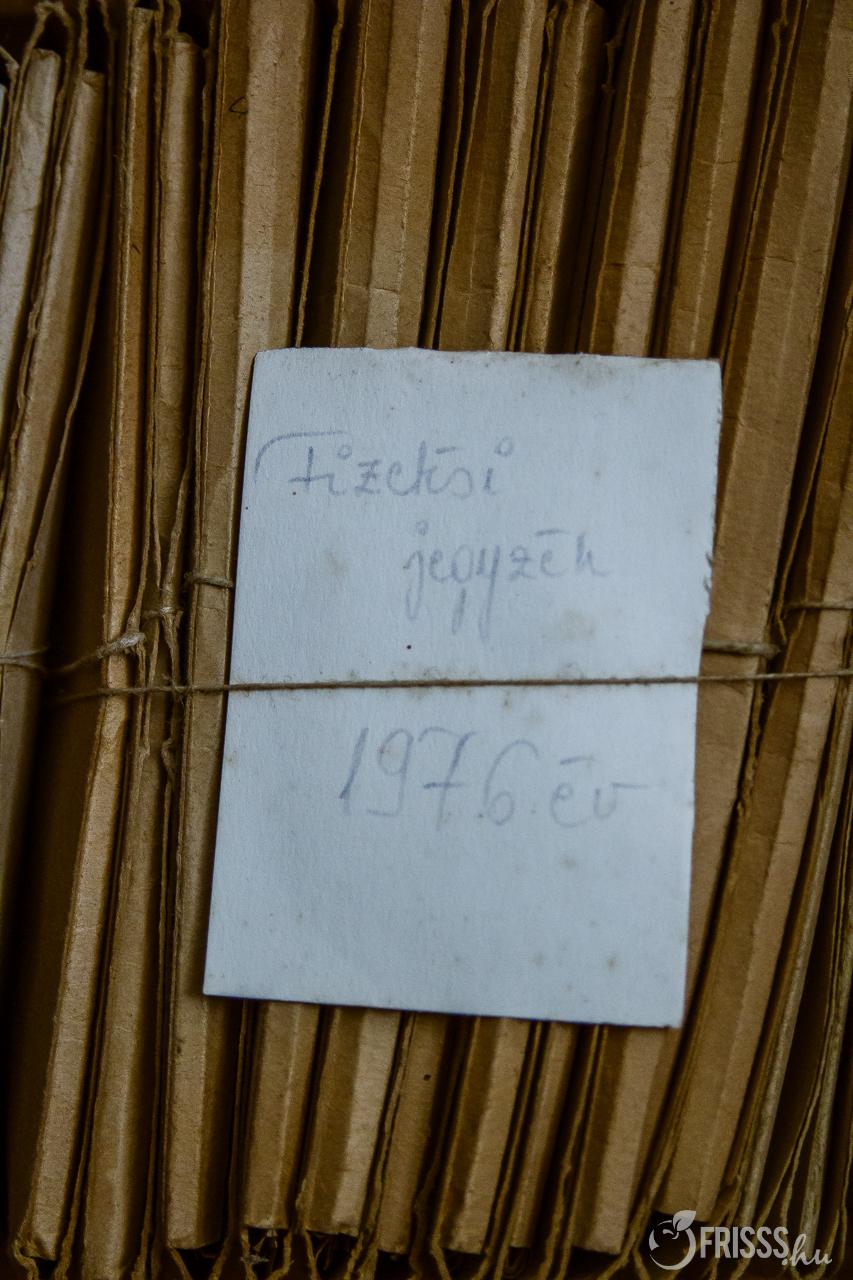 Fizetési
jegyzék
1976. év
FRISSS.hu